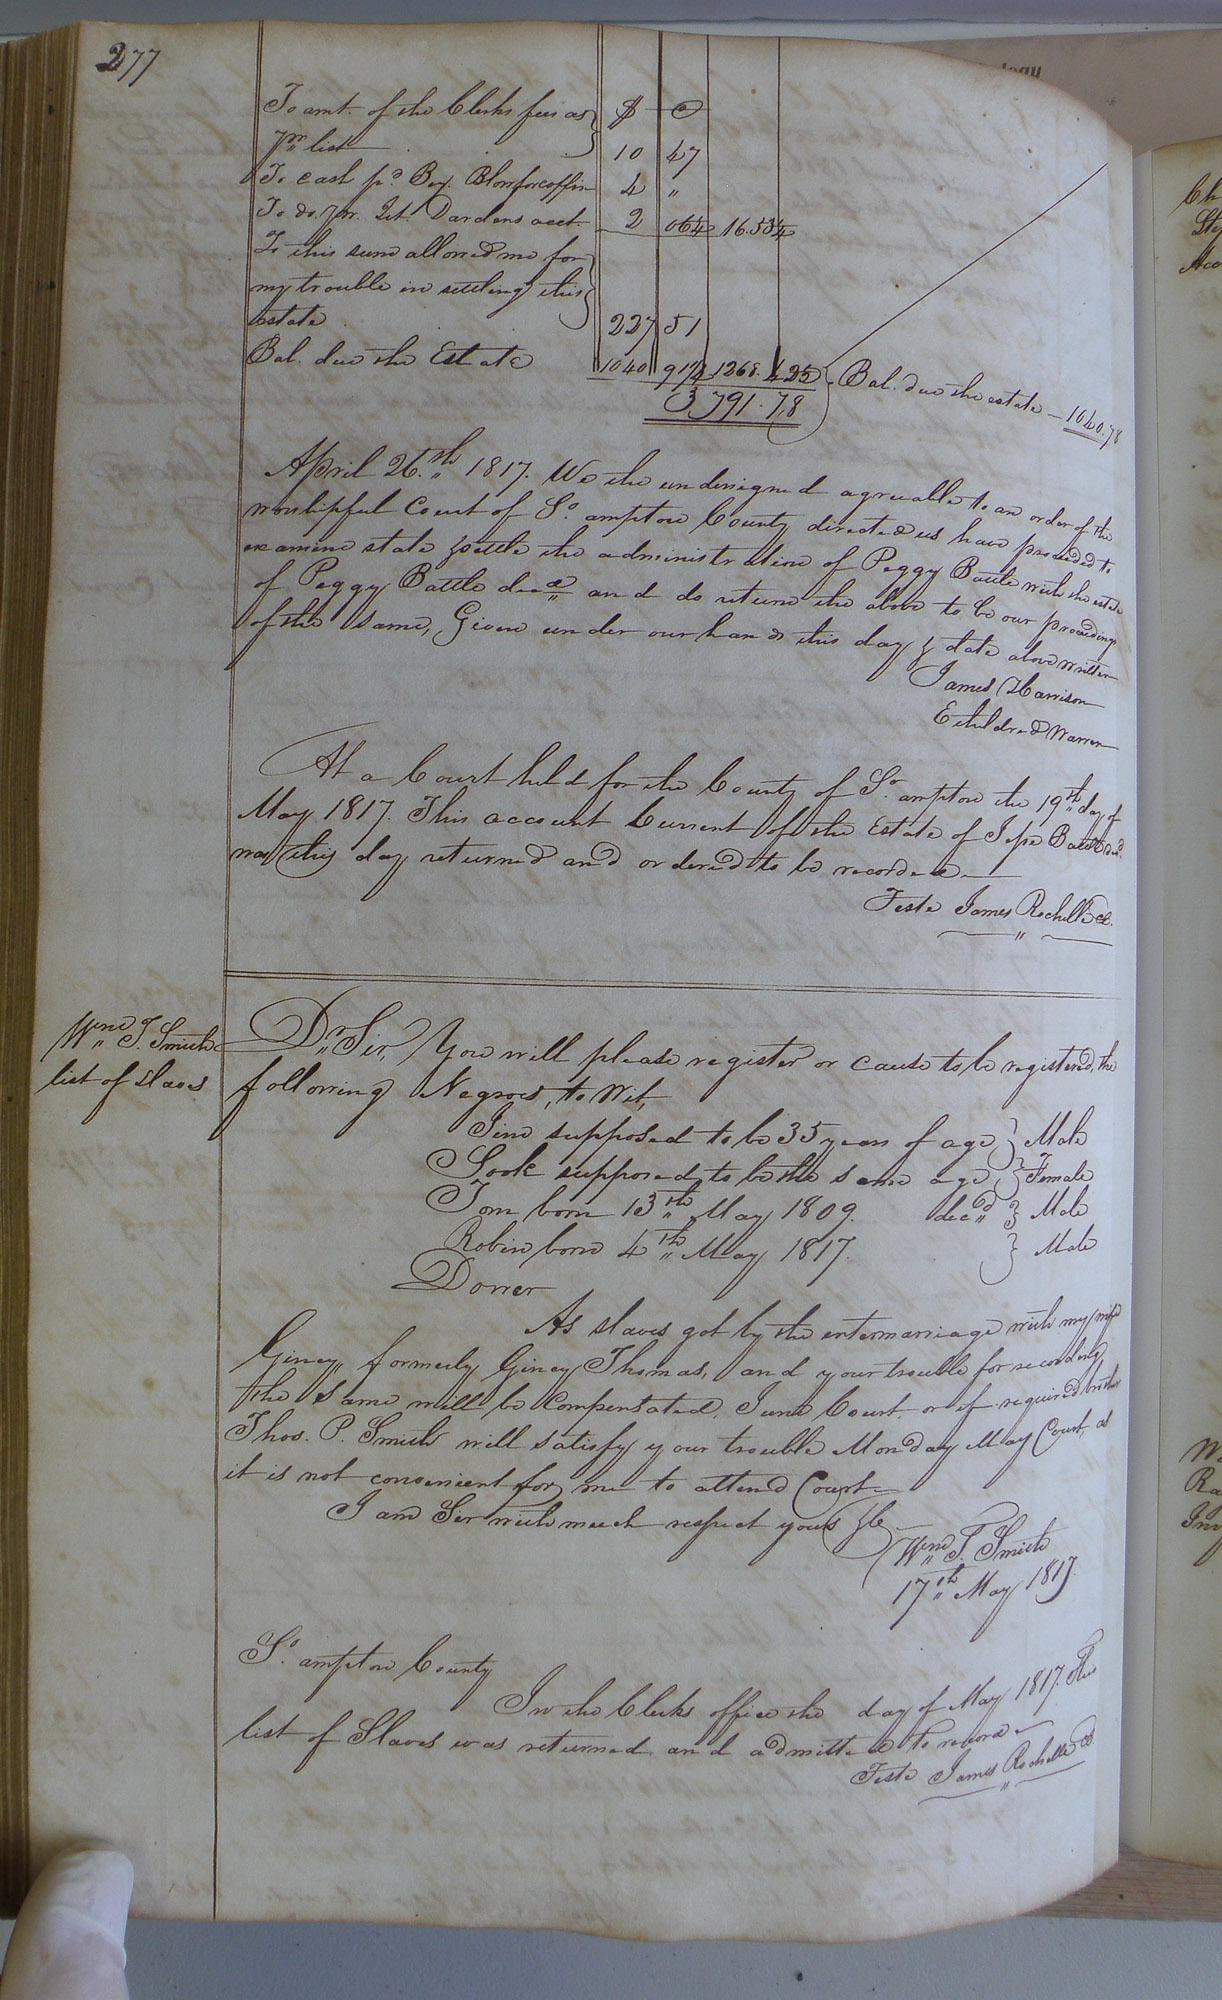 277
To amt. of the Clerks fees as $ C
pr. list 10 47
To cash pd. Benj. Blow for coffin 4 "
To do. pr. Lit. Dardens acct. 2 06¼ 16.53¼
To this sum allowed me for
my trouble in settling this
estate 227 51
Bal. due the Estate 1040 91¾ 1268.42½ Bal. due the estate — 1040.78
3,791.78
April 26.th 1817. We the undersigned agreeable to an order of the
worshipful Court of So. ampton County directed us have proceeded to
examine state & settle the administration of Peggy Battle with the estate
of Peggy Battle decd and do return the above to be our proceedings
of the same, Given under our hands this day & date above written
James Harrison
Etheldred Warren
At a Court held for the County of So. ampton the 19th day of
May 1817. This account Current of the Estate of Jesse Battle decd.
was this day returned and ordered to be recorded —
Teste James Rochelle Cl.
Wm. T. Smith
list of slaves
Dr. Sir, You will please register or cause to be registered, the
following Negroes, to Wit,
Jim supposed to be 35 years of age } Male
Sook supposed to be the same age } Female
Tom born 13th May 1809. decd } Male
Robin born 4th May 1817. } Male
Dower
As slaves got by the intermarriage with my wife
Gincy, formerly Gincy Thomas, and your trouble for recording
the same will be compensated, June Court. or if required brother
Thos. P. Smith will satisfy your trouble Monday May Court, as
it is not convenient for me to attend Court —
I am Sir with much respect yours &c
Wm. T. Smith
17th May 1817.
So. ampton County
In the Clerks office the day of May 1817. This
list of Slaves was returned and admitted to record —
Teste James Rochelle Cl.